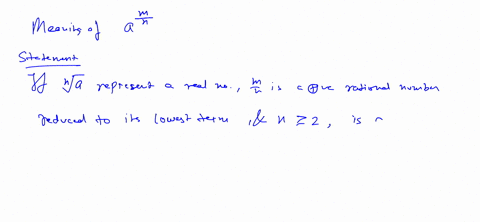 Meaning of a^{m/n}
Statement
If ⁿ√a represent a real no., m/n is a ⊕ve rational number
reduced to its lowest term, & n ≥ 2, is